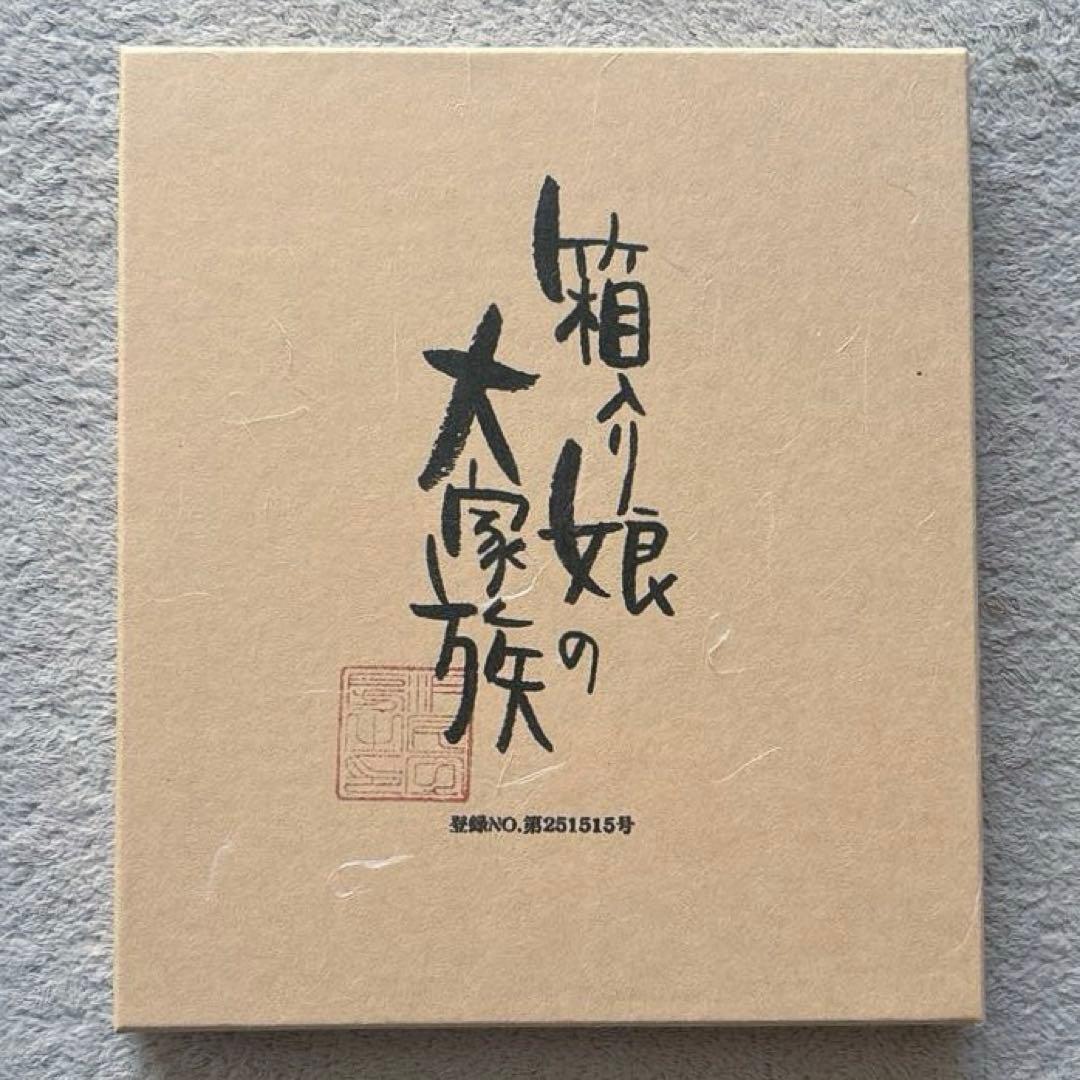 箱入り娘の
大家族
登録NO.第251515号